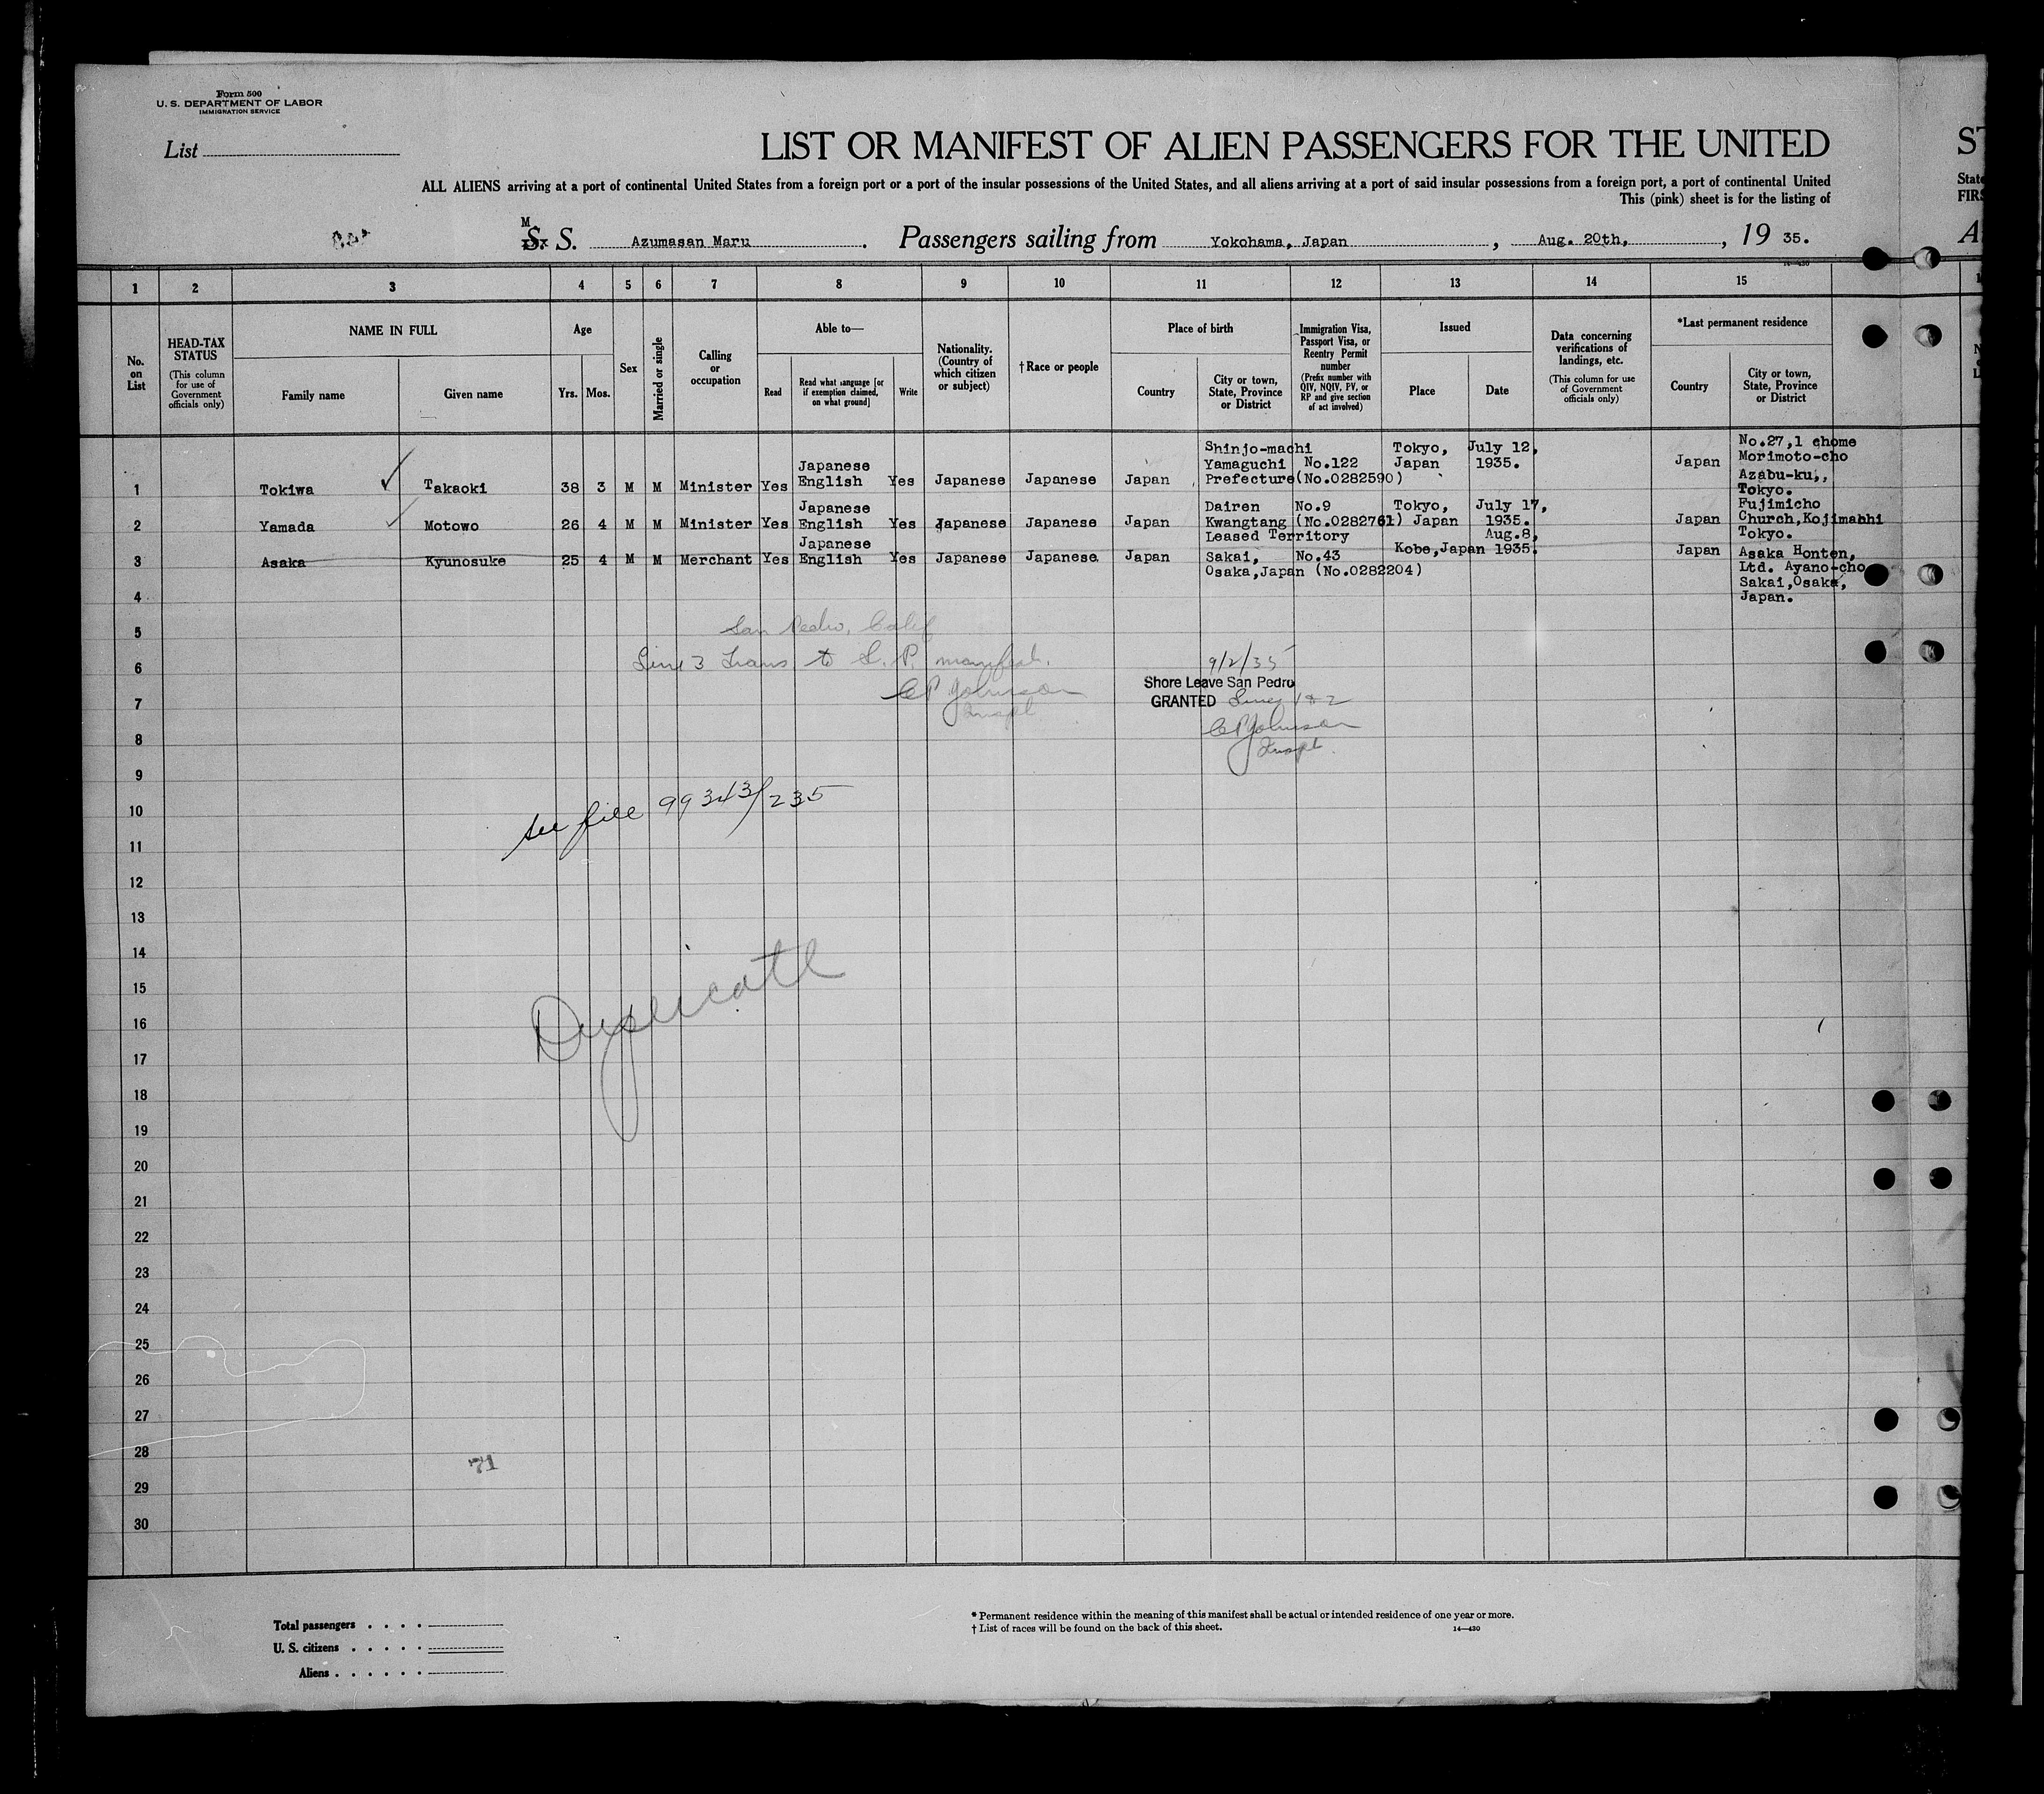 Form 500
U. S. DEPARTMENT OF LABOR
IMMIGRATION SERVICE
List
LIST OR MANIFEST OF ALIEN PASSENGERS FOR THE UNITED
ST
ALL ALIENS arriving at a port of continental United States from a foreign port or a port of the insular possessions of the United States, and all aliens arriving at a port of said insular possessions from a foreign port, a port of continental United
State
This (pink) sheet is for the listing of
FIRS
M
S. S. Azumasan Maru. Passengers sailing from Yokohama, Japan, Aug. 20th,, 19 35.
14—430
1 2 3 4 5 6 7 8 9 10 11 12 13 14 15
No. on List
HEAD-TAX STATUS
(This column for use of Government officials only)
NAME IN FULL
Family name
Given name
Age
Yrs. Mos.
Sex
Married or single
Calling or occupation
Able to—
Read
Read what language [or if exemption claimed, on what ground]
Write
Nationality. (Country of which citizen or subject)
† Race or people
Place of birth
Country
City or town, State, Province or District
Immigration Visa, Passport Visa, or Reentry Permit number
(Prefix number with QIV, NQIV, PV, or RP and give section of act involved)
Issued
Place
Date
Data concerning verifications of landings, etc.
(This column for use of Government officials only)
*Last permanent residence
Country
City or town, State, Province or District
1 Tokiwa Takaoki 38 3 M M Minister Yes Japanese English Yes Japanese Japanese Japan Shinjo-machi Yamaguchi Prefecture No.122 (No.0282590) Tokyo, Japan July 12, 1935. Japan No.27,1 chome Morimoto-cho Azabu-ku,, Tokyo.
2 Yamada Motowo 26 4 M M Minister Yes Japanese English Yes Japanese Japanese Japan Dairen Kwangtang Leased Territory No.9 (No.0282761) Tokyo, Japan July 17, 1935. Japan Fujimicho Church,Kojimahhi Tokyo.
3 Asaka Kyunosuke 25 4 M M Merchant Yes Japanese English Yes Japanese Japanese. Japan Sakai, Osaka,Japan No.43 (No.0282204) Kobe,Japan Aug.8, 1935. Japan Asaka Honten, Ltd. Ayano-cho Sakai,Osaka, Japan.
4
5
San Pedro, Calif
6
Line 3 Trans to S. P. manifest.
9/2/35
CP Johnson
Inspt
Shore Leave San Pedro
7
GRANTED Lines 1 & 2
CP Johnson
8
Inspt.
9
10
see file 99343/235
11
12
13
14
15
Duplicate
16
17
18
19
20
21
22
23
24
25
26
27
28
71
29
30
Total passengers
U. S. citizens
Aliens
* Permanent residence within the meaning of this manifest shall be actual or intended residence of one year or more.
† List of races will be found on the back of this sheet.
14—430